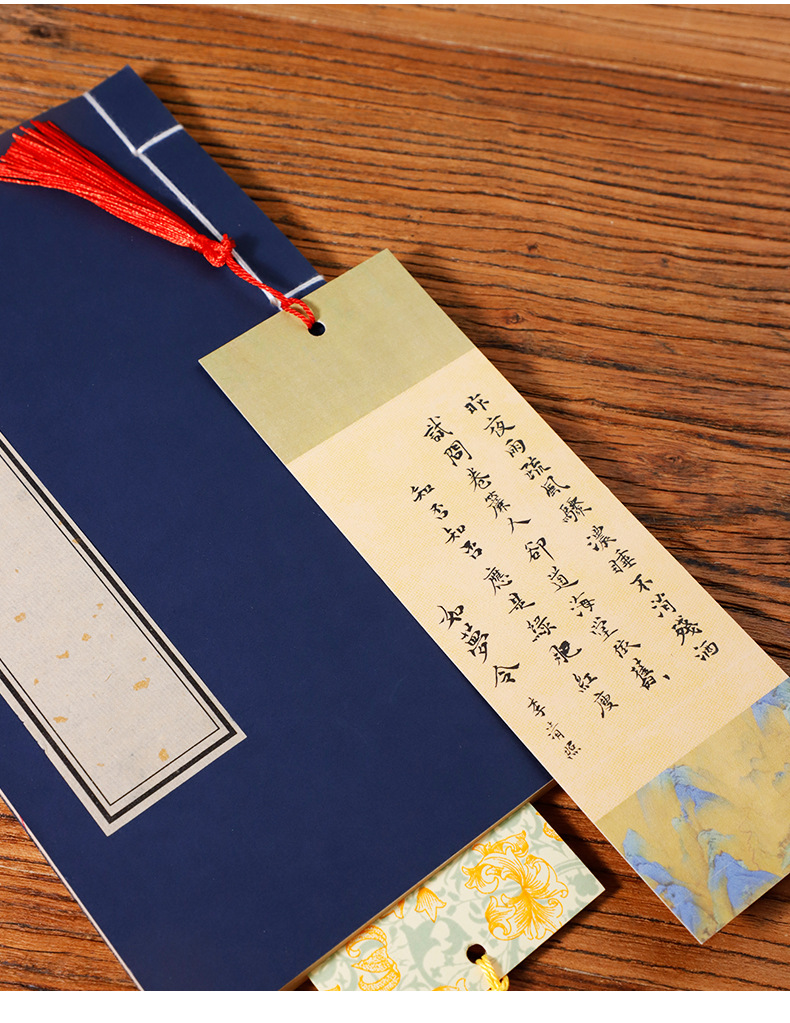 昨夜雨疏風驟濃睡不消殘酒
試問卷簾人卻道海堂依舊、
知否知否應是綠肥紅瘦
如夢令
李清照